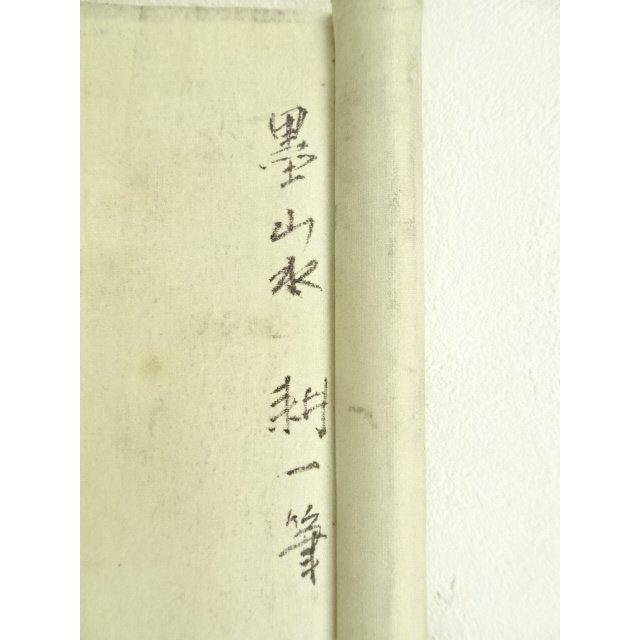 墨山水 耕一筆